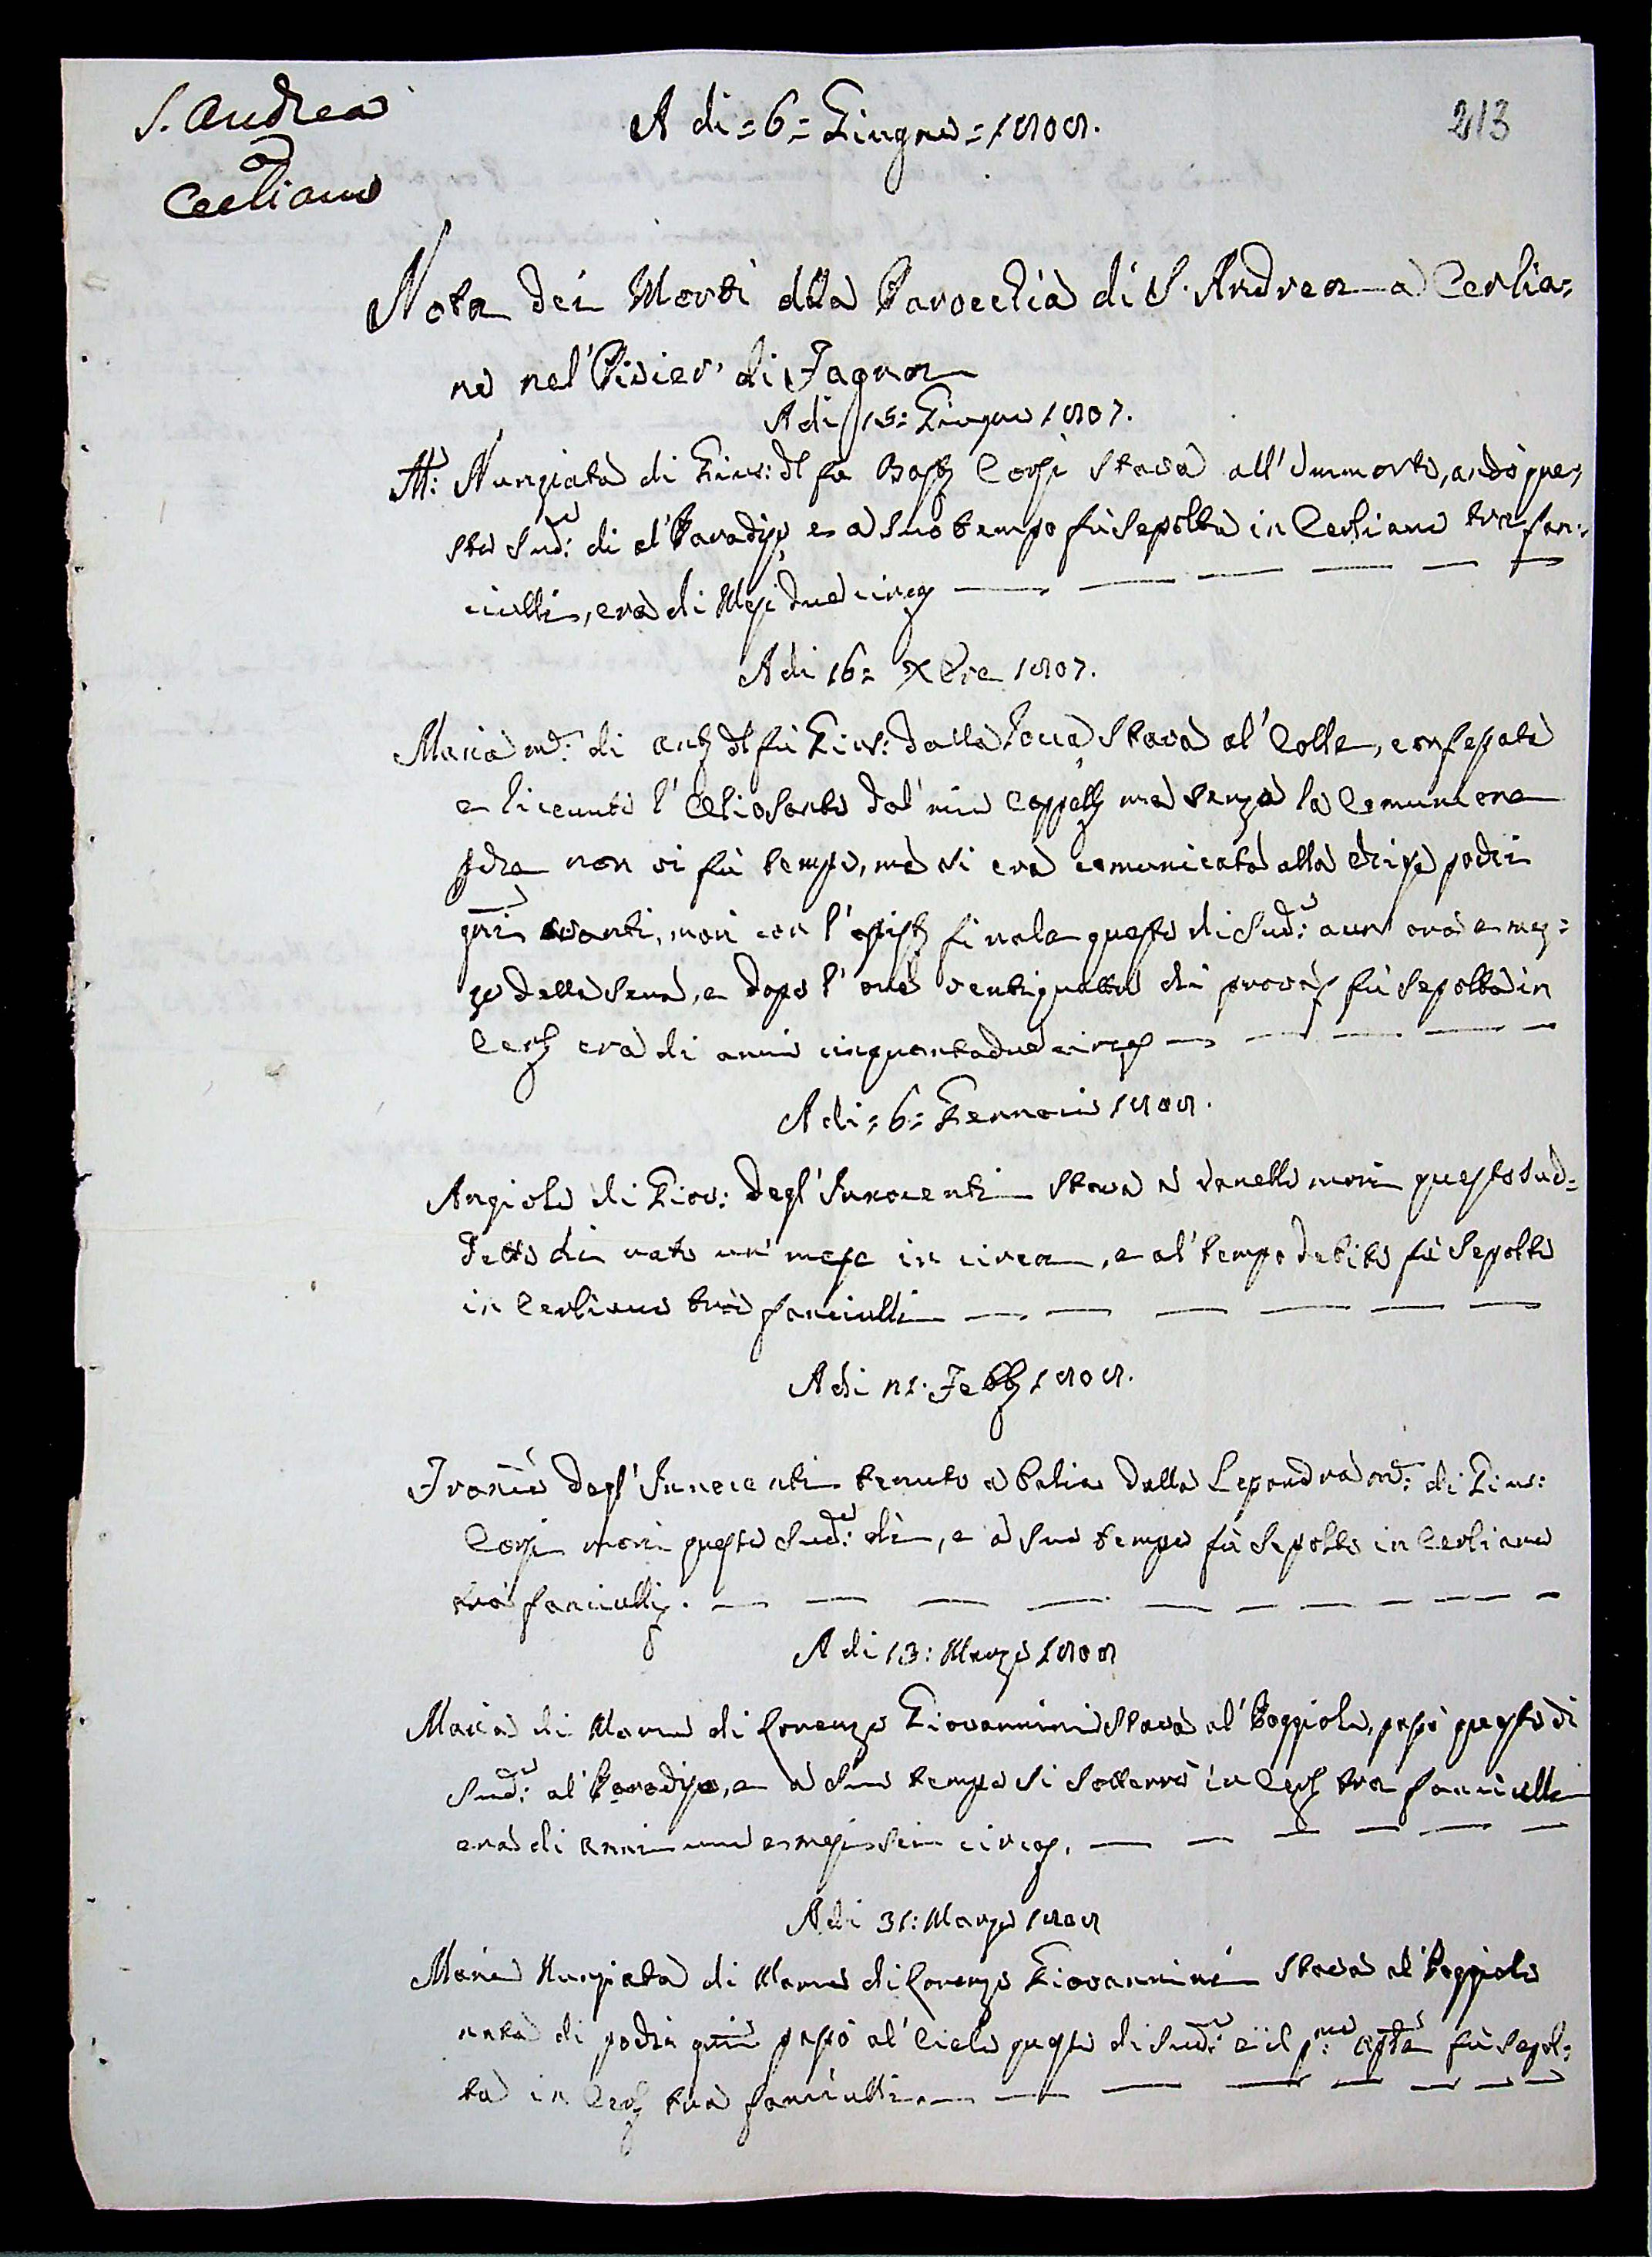 S. Andrea
a
Cerliano
A di = 6 = Giugno = 1808.
213
Nota dei Morti della Parocchia di S. Andrea a Cerlia=
no nel' Pivier' di Fagna
A di 15: Giugno 1807.
Nunziata di Gius: del fu Corsi stava all' Immorto, andò que=
sto Sud: di al' Paradiso e a suo tempo fù sepolta in Cerliano tra fan=
ciulli, era di Mesi due circa
A di 16 = Xbre 1807.
Maria m: di Ant del fù Gius: dalla stava al' Colle, confessata
e licevuto l' Oliosanto dal' mio Cappell ma senza la Comunione
che non vi fù tempo, ma si era comunicata alla chiesa pochi
gni avanti, morì con l' assist finale questo di Sud: a un' ora e mez=
zo della sera, e dopo l' ore ventiquattro di prova fù sepolta in
Cerl era di anni cinquantadue circa
A di = 6 = Gennaio 1808.
Angiolo di Giov: degl' Innocenti stava a morì questo sud=
detto di nato un' mese in circa, e al' tempo debito fù sepolto
in Cerliano trà fanciulli
A di 21. Febb 1808.
Franco degl' Innocenti tenuto a balia dalla Lessandra m: di Gius:
Corsi morì questo Sud: di, e a suo tempo fù sepolto in Cerliano
trà fanciulli.
A di 13: Marzo 1808
Maria di Marco di Lorenzo Giovannini stava al' Poggiolo, passò questo di
Sud: al' Paradiso, e a suo tempo si sotterrò in Cerl tra fanciulli
era di anni uno e mesi sei circa.
A di 31: Marzo 1808
Maria Nunziata di Marco di Lorenzo Giovannini stava al' Poggiolo
nata di pochi gni passò al' Cielo questo di Sud: e il p: Aple fù sepol=
ta in Cerl trà fanciulli.